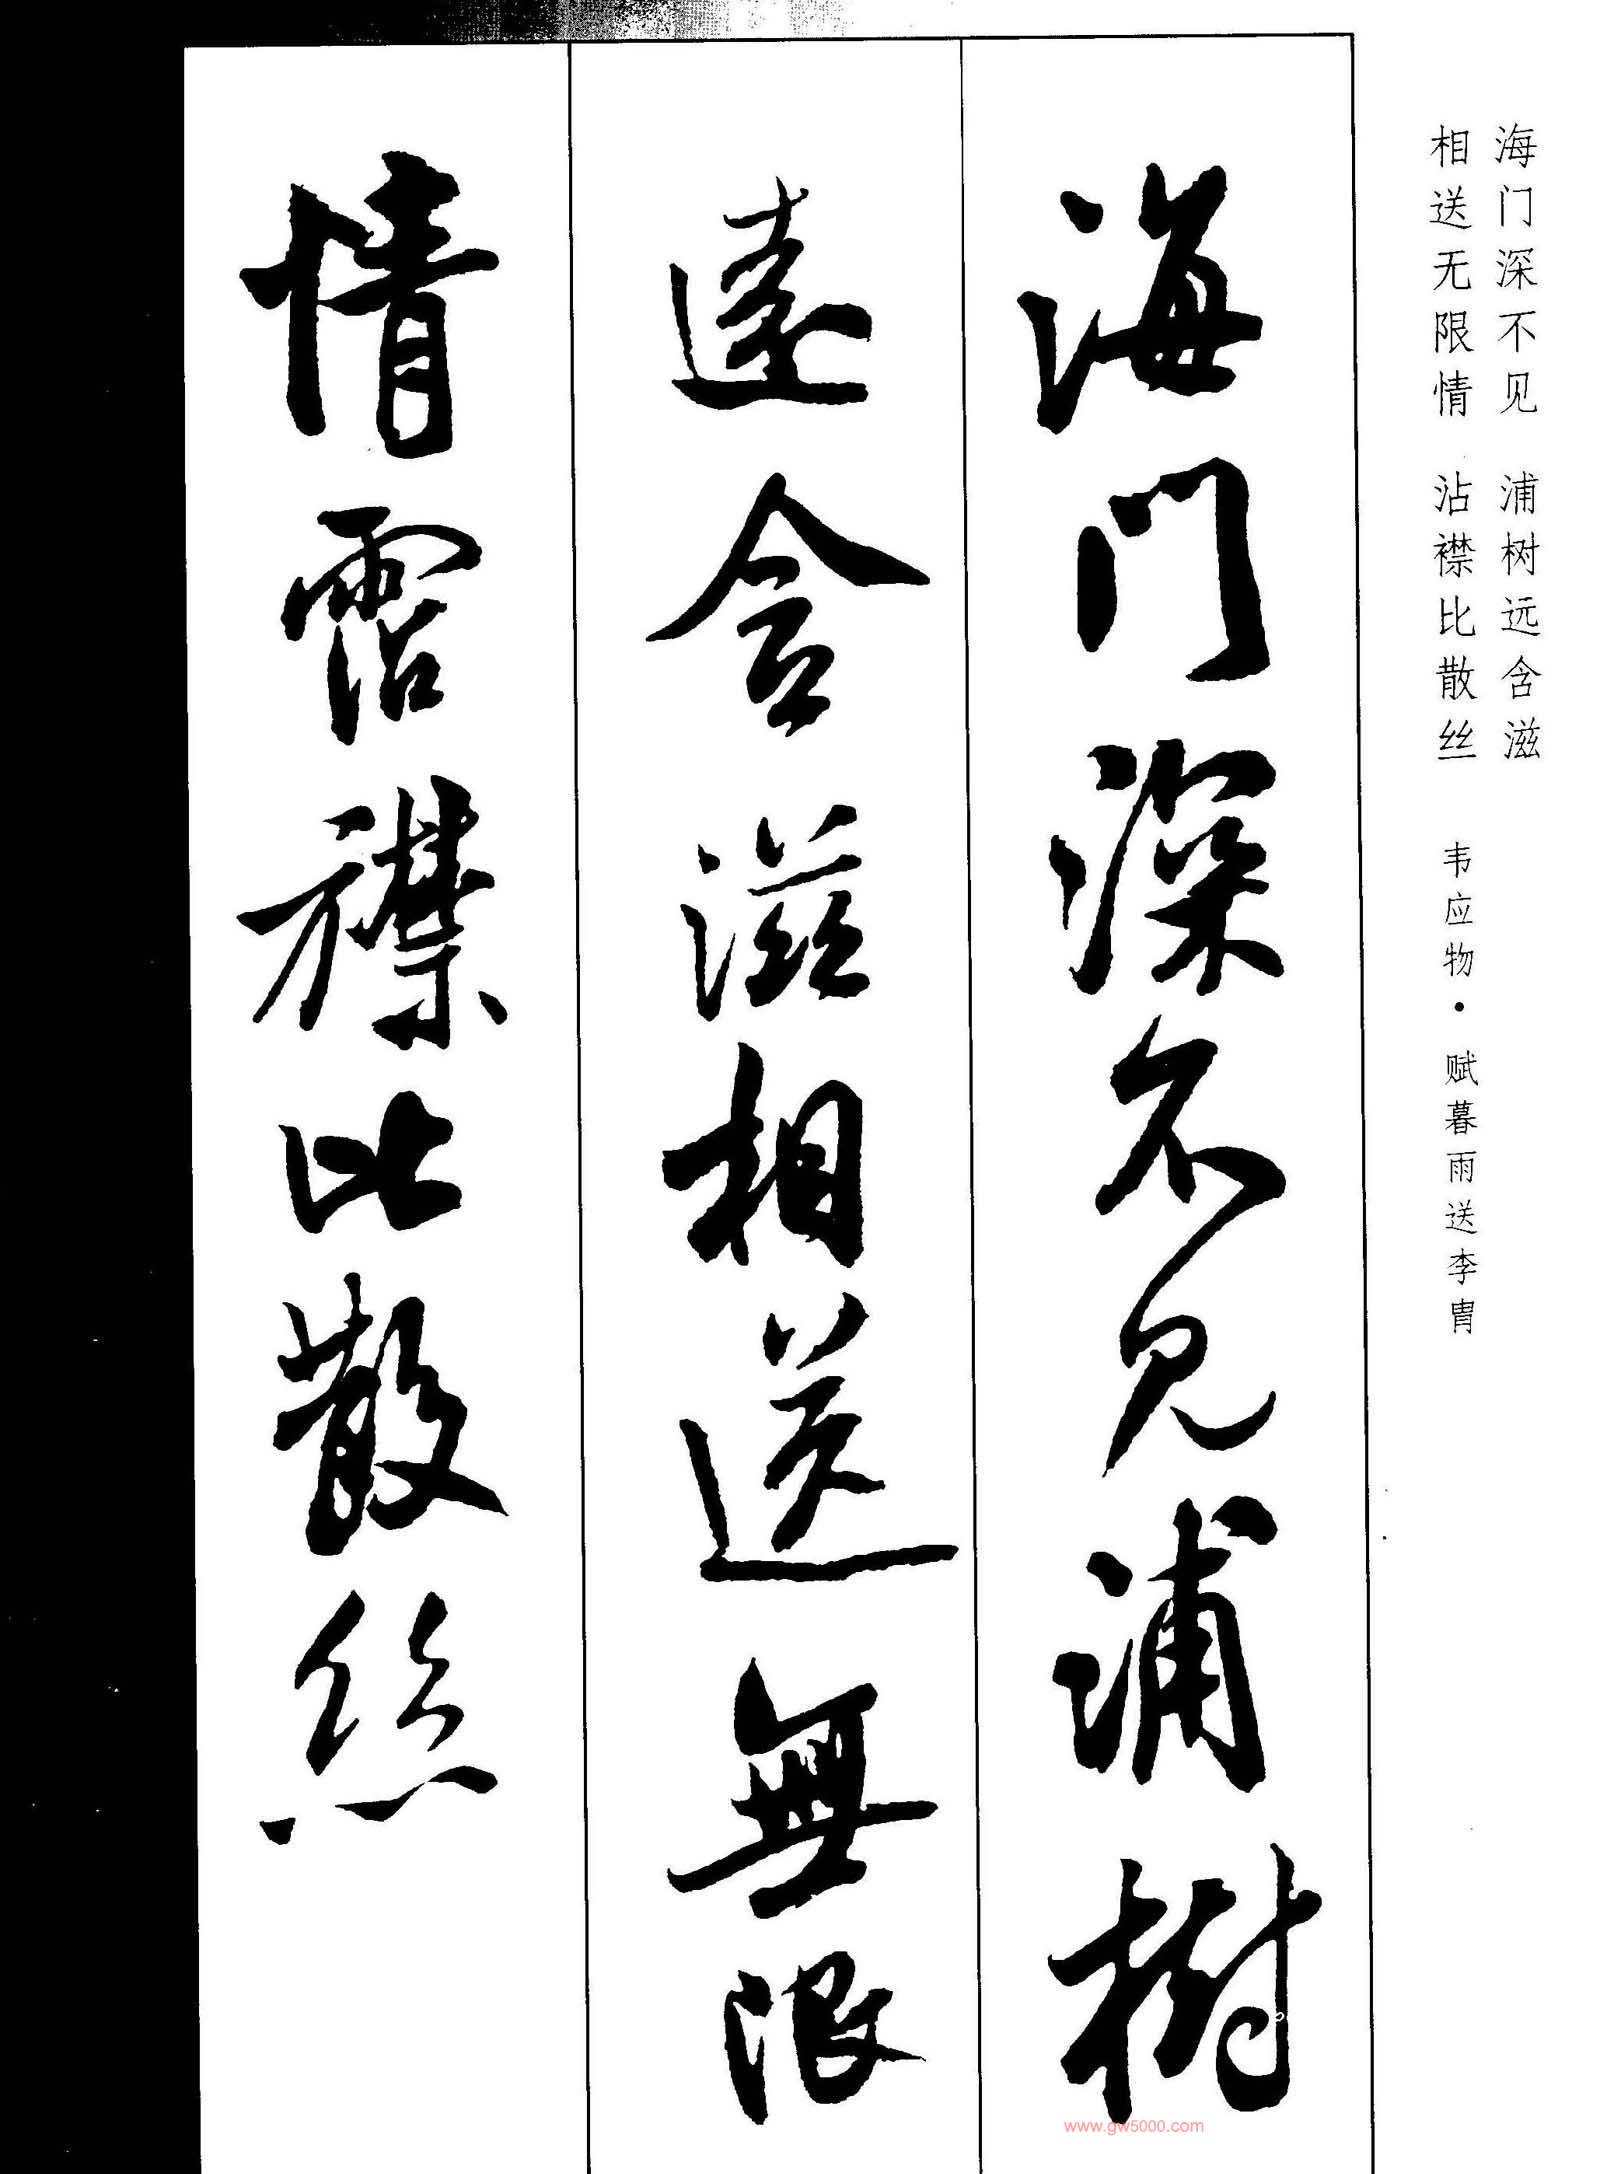 海门深不见 浦树远含滋
相送无限情 沾襟比散丝 韦应物·赋暮雨送李胄
海門深不見浦樹
遠含滋相送無限
情霑襟比散絲
www.gw5000.com